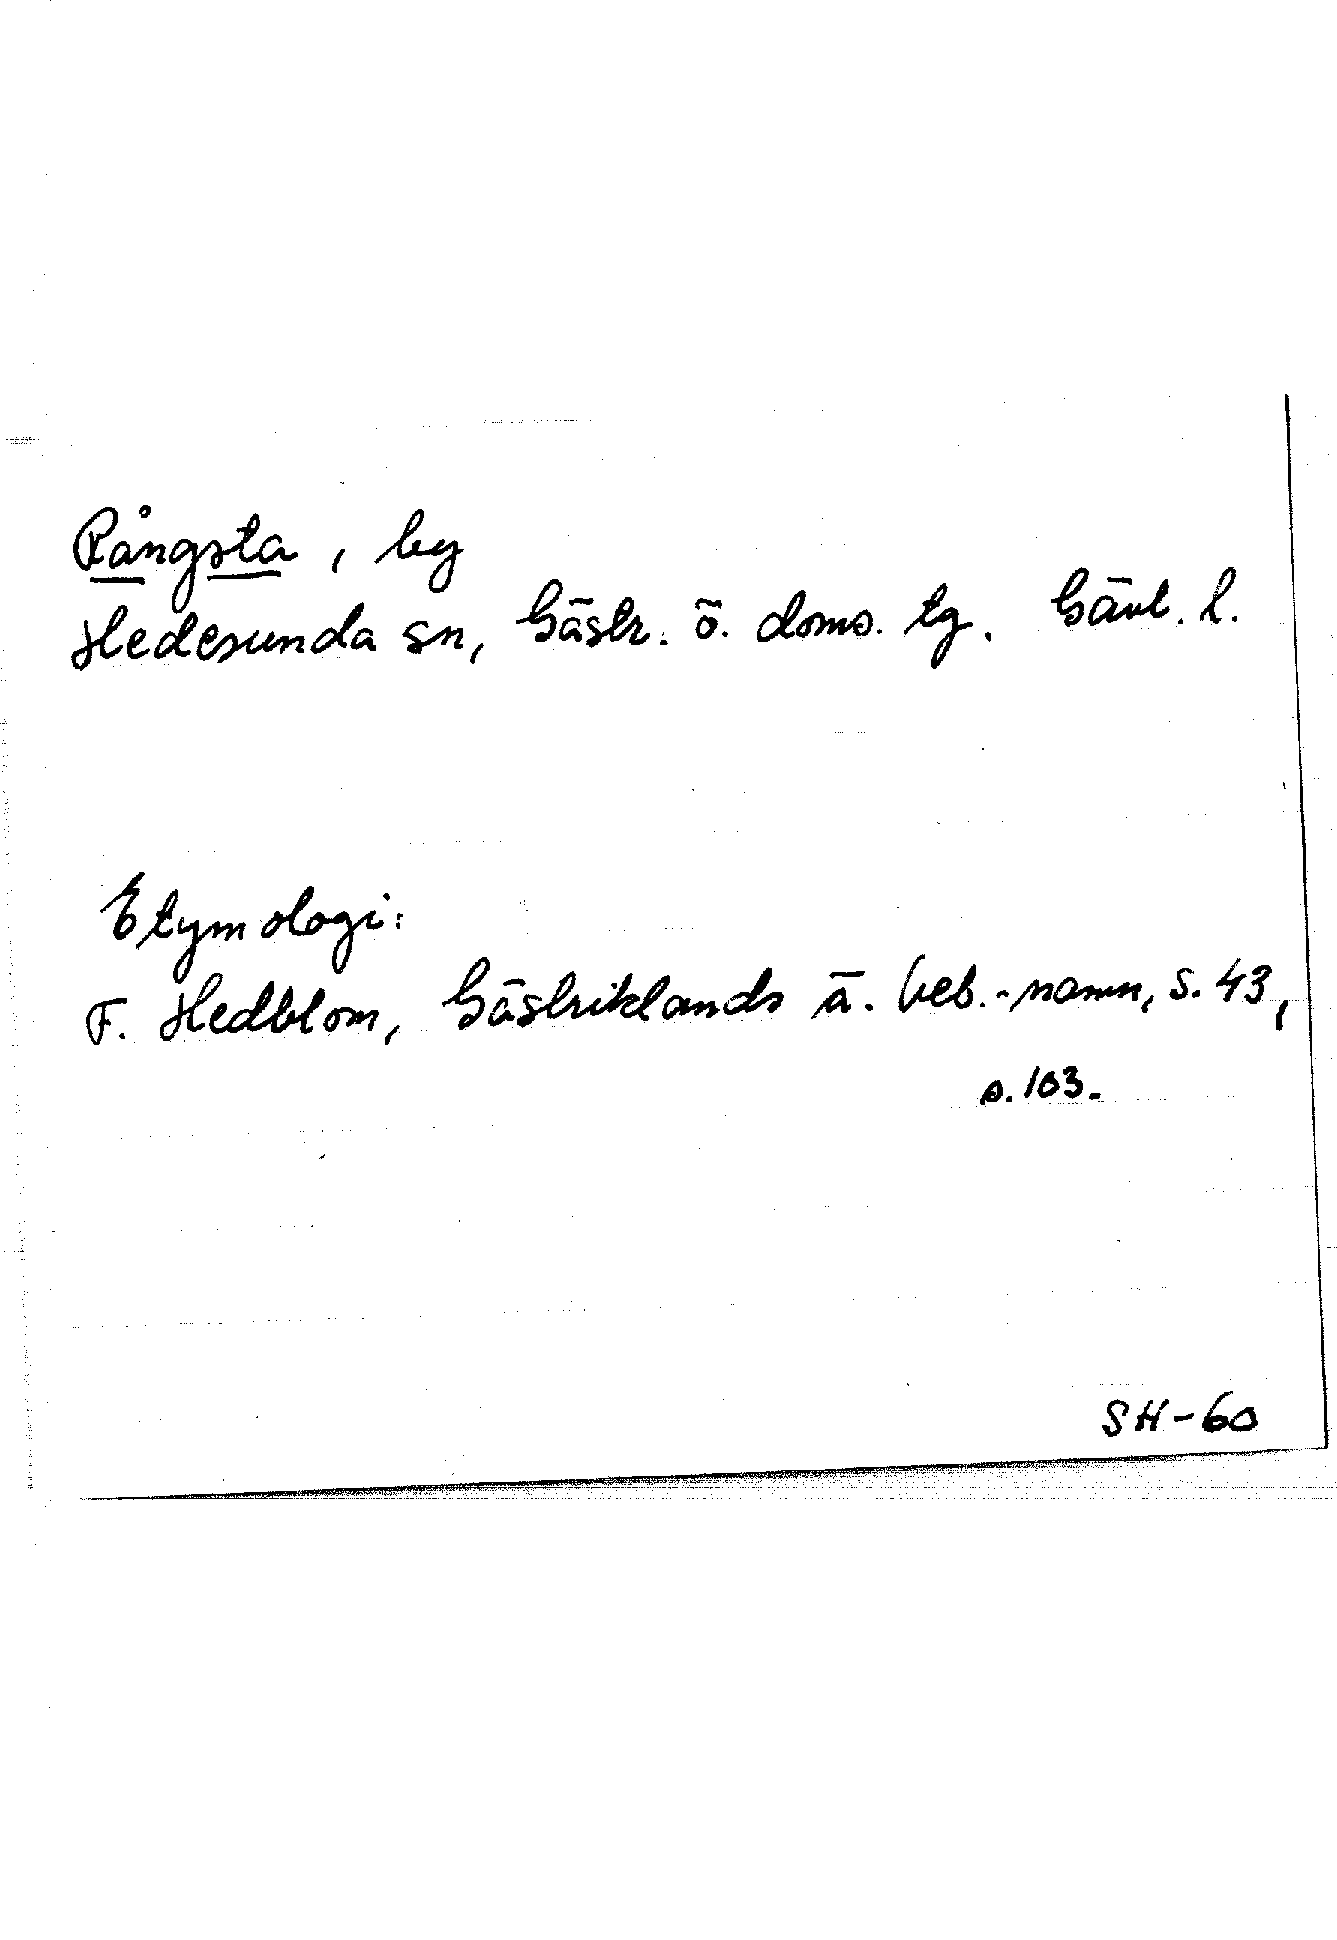 Rångsta, by
Hedesunda sn, Gästr. ö. doms. tg. Gävl. l.
Etymologi:
F. Hedblom, Gästriklands ä. beb.-namn, s. 43,
s. 103.
SH-60